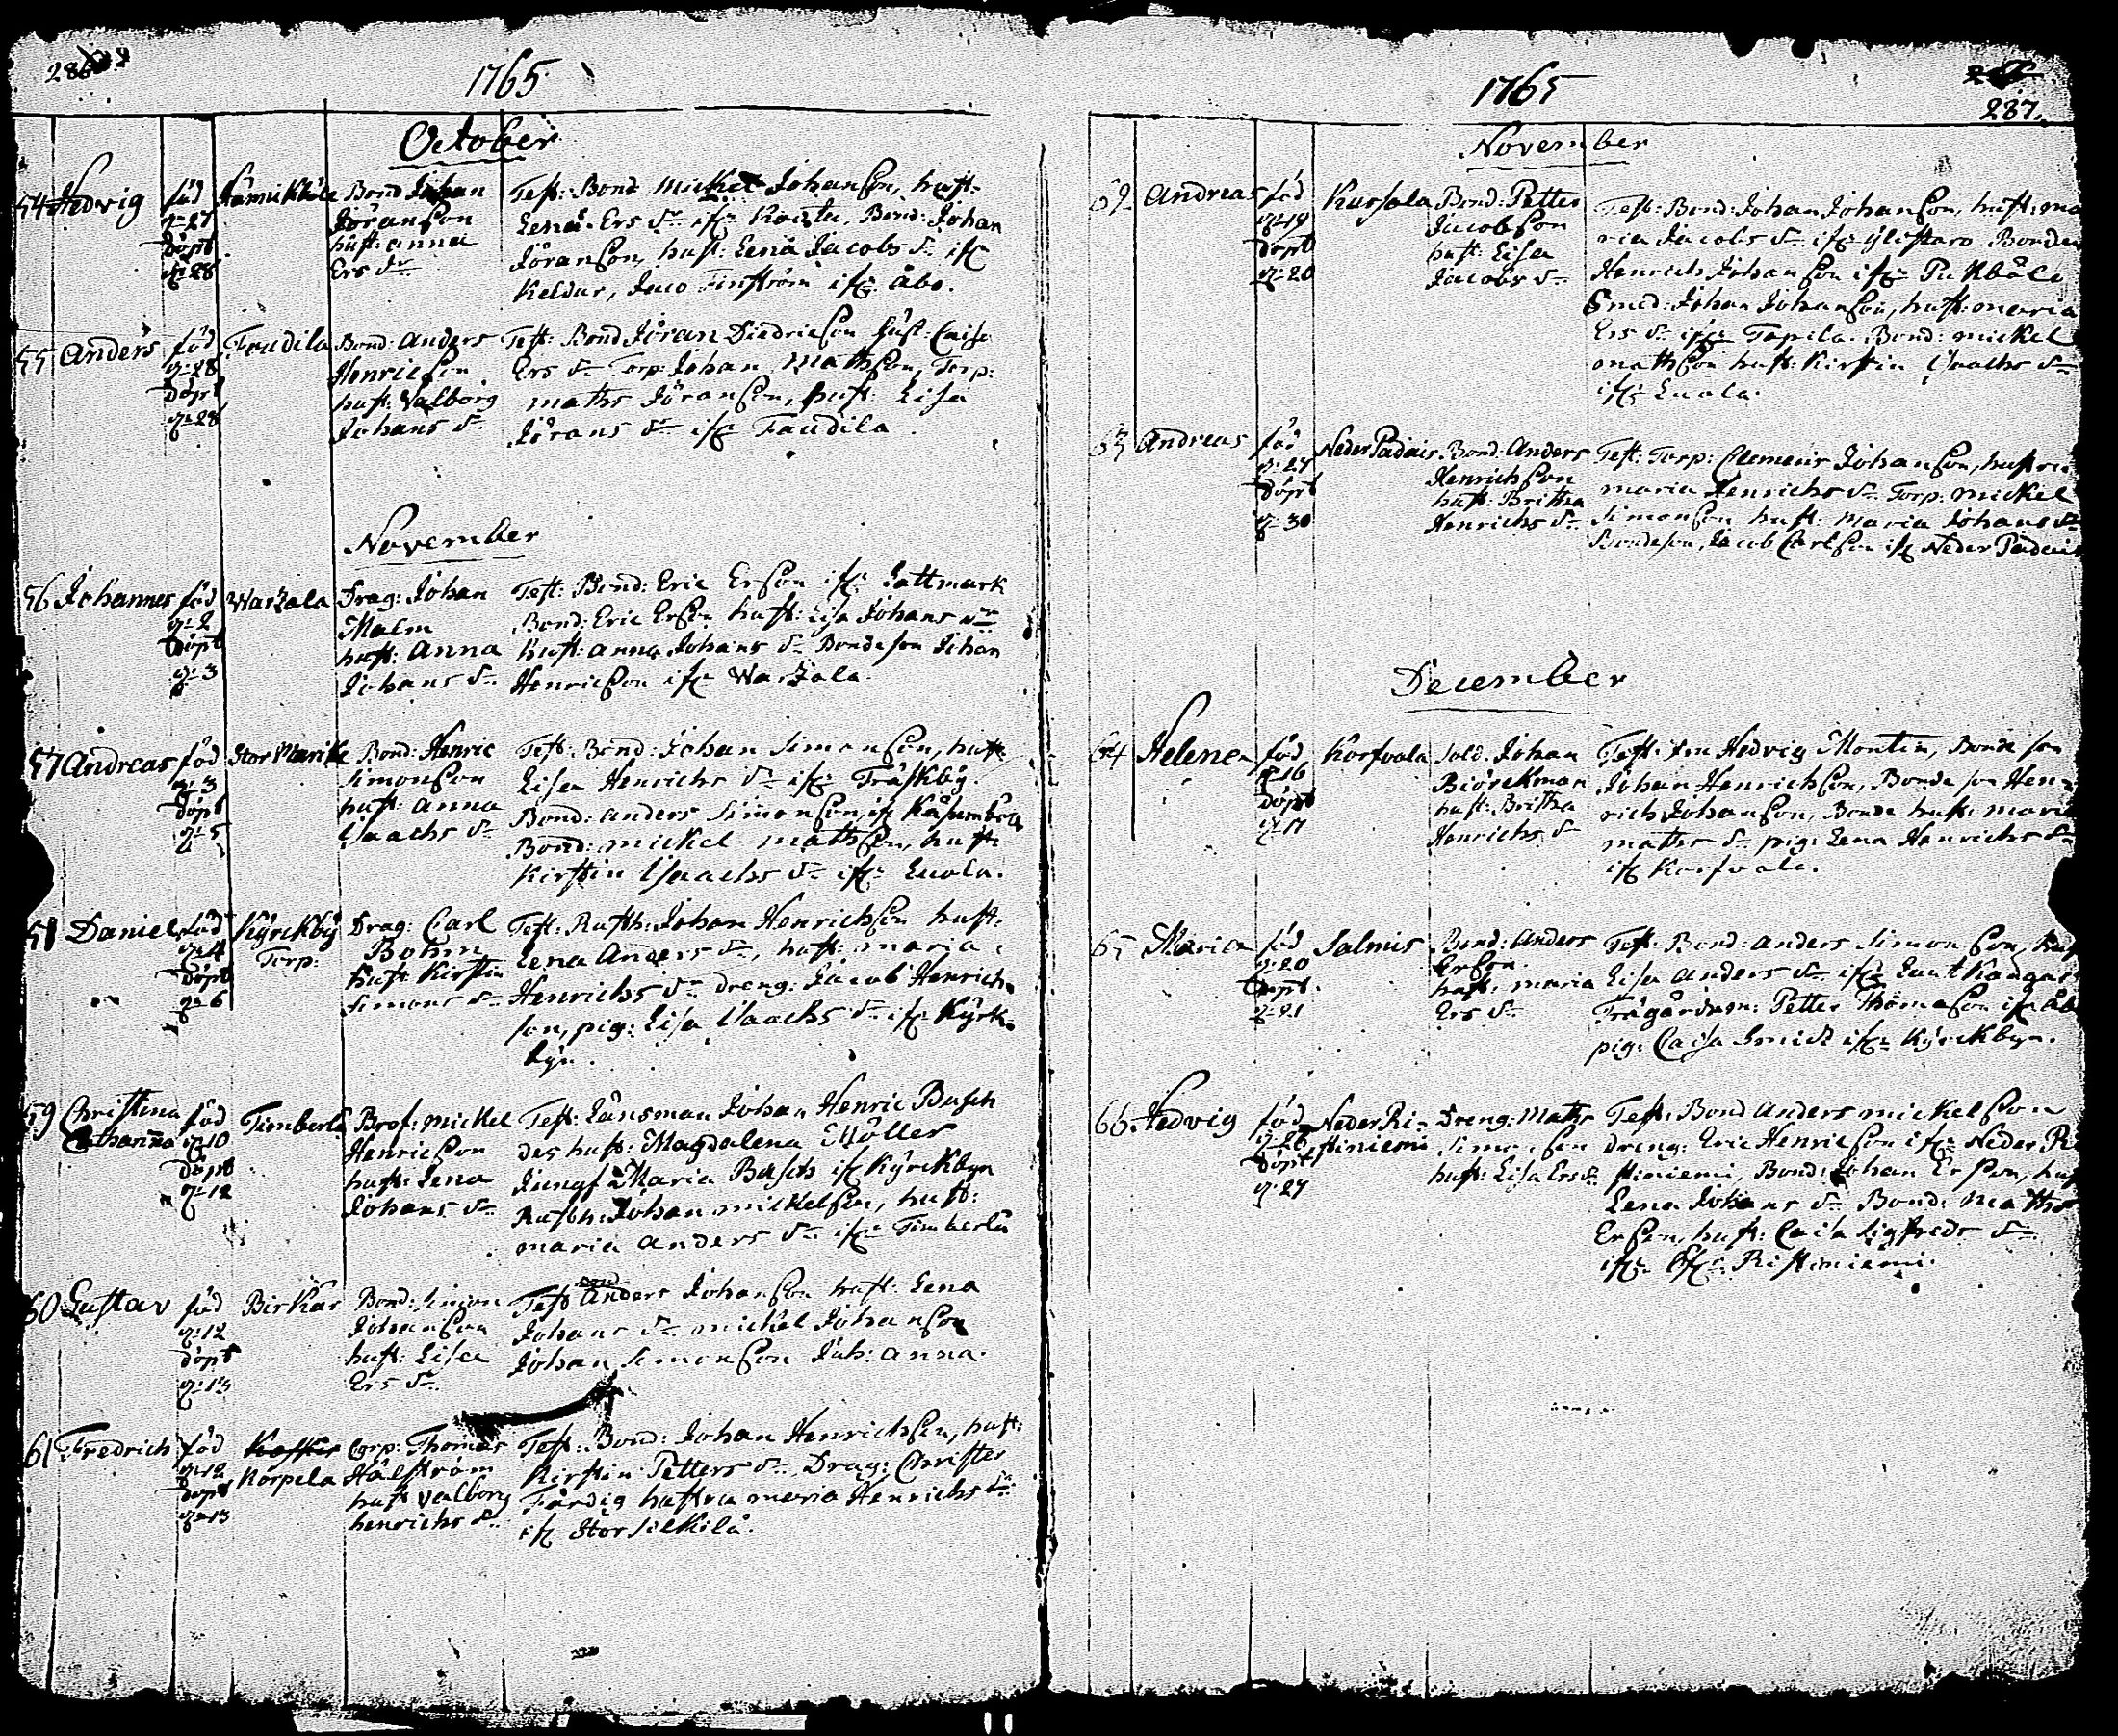 286
1765
October
54 Hedvig
föd
d: 27
döpt
d: 28
Bond Johan
Jöranson
hust: anna
Ers dr
Test: Bond Mickel Johanson, hust:
Lena Ers dr if: Bond: Johan
Jöranson, hust: Lena Jacobs dr if
Keldar, Finström if: Åbo.
55 Anders
föd
d: 28
döpt
d: 28
Faudila
Bond: Anders
Henricson
hust: Valborg
Johans dr
Test: Bond Jöran Diedricson hust: Caisa
Ers dr Torp: Johan Mathson, Torp:
maths Jöranson, hust: Lisa
Jörans dr if Faudila
November
56 Johannes
föd
d: 2
döpt
d: 3
Warzala
Drag: Johan
Malm
hust: Anna
Johans dr
Test: Bond: Eric Erson if: Lattmark
Bond: Eric Erson hust: Lisa Johans dr
hust: anna Johans dr Bondeson Johan
Henricson if Warzala.
57 Andreas
föd
d: 3
döpt
d: 5
Stor Marike
Bond: Henric
Simonson
hust: anna
Isaachs dr
Test: Bond: Johan Simonson, hust:
Lisa Henrichs dr if: Träskby.
Bond: anders Simonson, if
Bond: mickel mathson, hust:
Kirstin Isaachs dr if: Euola.
58 Daniel
föd
d: 4
döpt
d: 6
Kyrckby
Torp:
Drag: Carl
Bohm
hust Kirstin
Simons dr
Test: Rusth: Johan Henrichson hust:
Lena Anders dr, hust: maria
Henrichs dr dreng: Jacob Henrich
son, pig: Lisa Isaachs dr if Kyrk
byn.
59 Christina
Catharina
föd
d: 10
döpt
d: 12
Timberlä
Prof: mickel
Henricson
hust: Lena
Johans dr
Test: Länsman Johan Henric Busch
des hust: Magdalena Möller
Jungf: Maria Busch if Kyrckbyn
Rusth: Johan mickelson, hust:
maria anders dr if: Timberlä
60 Gustav
föd
d: 12
döpt
d: 13
Birkar
Bond: Simon
Johanson
hust: Lisa
Ers dr
Test Bond Anders Johanson hust: Lena
Johans dr mickel Johanson
Johan Simonson anna.
61 Fredrich
föd
d: 12
döpt
d: 13
Korpela
Corp: Thomas
Hälström
hust Valborg
henrichs dr
Test: Bond: Johan Henrichson, hust:
Kirstin Petters dr Drag: Christer
Färdig hustru maria Henrichs dr
if Stor Silkilä.
1765
287.
November
62 Andreas
föd
d: 19
döpt
d: 20
Karsala
Bond: Petter
Jacobson
hust: Lisa
Jacobs dr
Test: Bond: Johan Johanson, hust: ma
ria Jacobs dr if Ylistaro Bonden
Henrich Johanson if: Pukböle
Smed: Johan Johanson, hust: maria
Ers dr if Topila. Bond: mickel
mathson hust: Kirstin Isaachs dr
if: Euola.
63 Andreas
föd
d: 27
döpt
d: 30
Neder Padais
Bond: Anders
Henrichson
hust: Britha
Henrichs dr
Test: Torp: Clemens Johanson, hustru
maria Henrichs dr Torp: Mickel
Simonson hust: Maria Johans dr
Bondeson, Jacob Carlson if Neder Padais
December
64 Helena
föd
d: 16
döpt
d: 17
Korfvala
Sold. Johan
Biörckman
hust: Britha
Henrichs dr
Test: Hedvig Montin, Bonde son
Johan Henrichson, Bonde son Hen
rich Johanson, Bonde hust: maria
maths dr pig: Lena Henrichs dr
if Korfvala.
65 Maria
föd
d: 20
döpt
d: 21
Salmis
Bond: Anders
Erson
hust: maria
Ers dr
Test: Bond: anders Simonson, hus
Lisa anders dr if Lautkangas
Trägårdsm: Petter Thomason if Åb
pig: Caisa Smidt if: Kyrckbyn.
66. Hedvig
föd
d: 26
döpt
d: 27
Neder Ri-
stiniemi
Dreng: Mats
Simonson
hust: Lisa Ers dr
Test: Bond Anders mickelson
dreng: Eric Henricson if: Neder Ri
stiniemi, Bond: Johan Erson, hus
Lena Johans dr Bond: Maths
Erson, hust: Caisa Sigfreds dr
if: Öf: Ristiniemi.